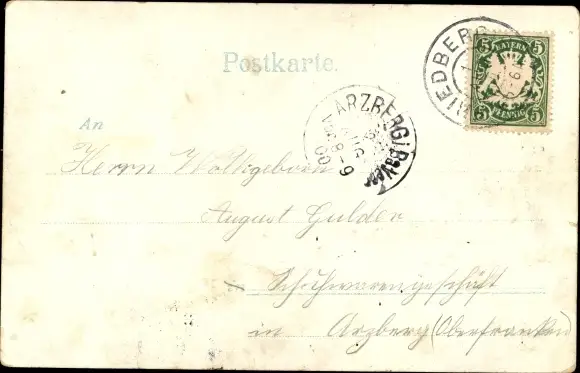 Postkarte.
BAYERN
5 5
5 5
PFENNIG
ARZBERG
An
Herrn
August Gulden
Schuhwarengeschäft
in Arzberg (Oberfranken)